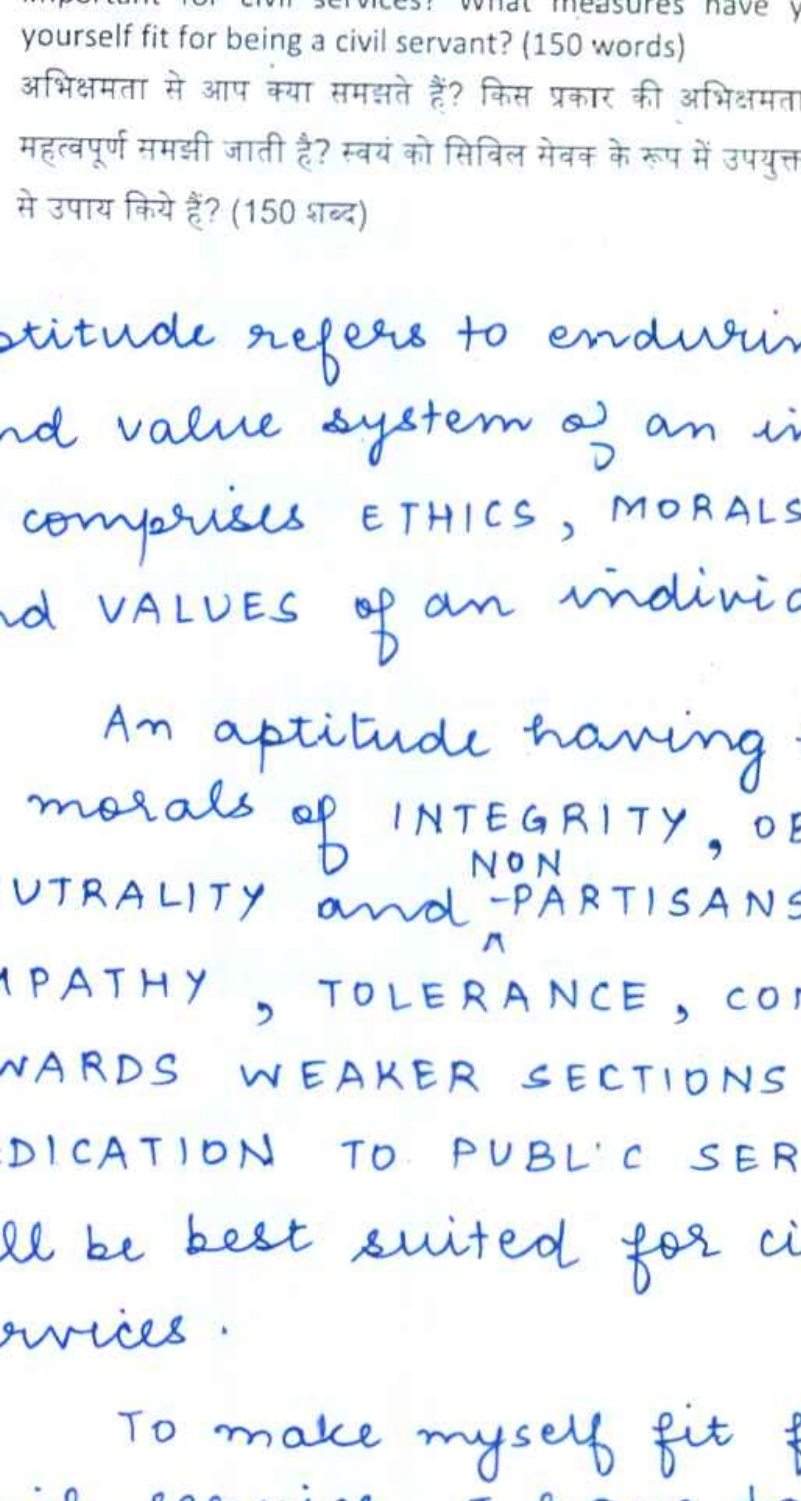 important for civil services? What measures have y
yourself fit for being a civil servant? (150 words)
अभिक्षमता से आप क्या समझते हैं? किस प्रकार की अभिक्षमता
महत्वपूर्ण समझी जाती है? स्वयं को सिविल सेवक के रूप में उपयुक्त
से उपाय किये हैं? (150 शब्द)
ptitude refers to endurin
nd value system of an in
comprises ETHICS, MORALS
nd VALUES of an individ
An aptitude having
morals of INTEGRITY, OB
NON
UTRALITY and -PARTISANS
MPATHY, TOLERANCE, COM
WARDS WEAKER SECTIONS
DICATION TO PUBLIC SER
ll be best suited for ci
ervices.
To make myself fit f